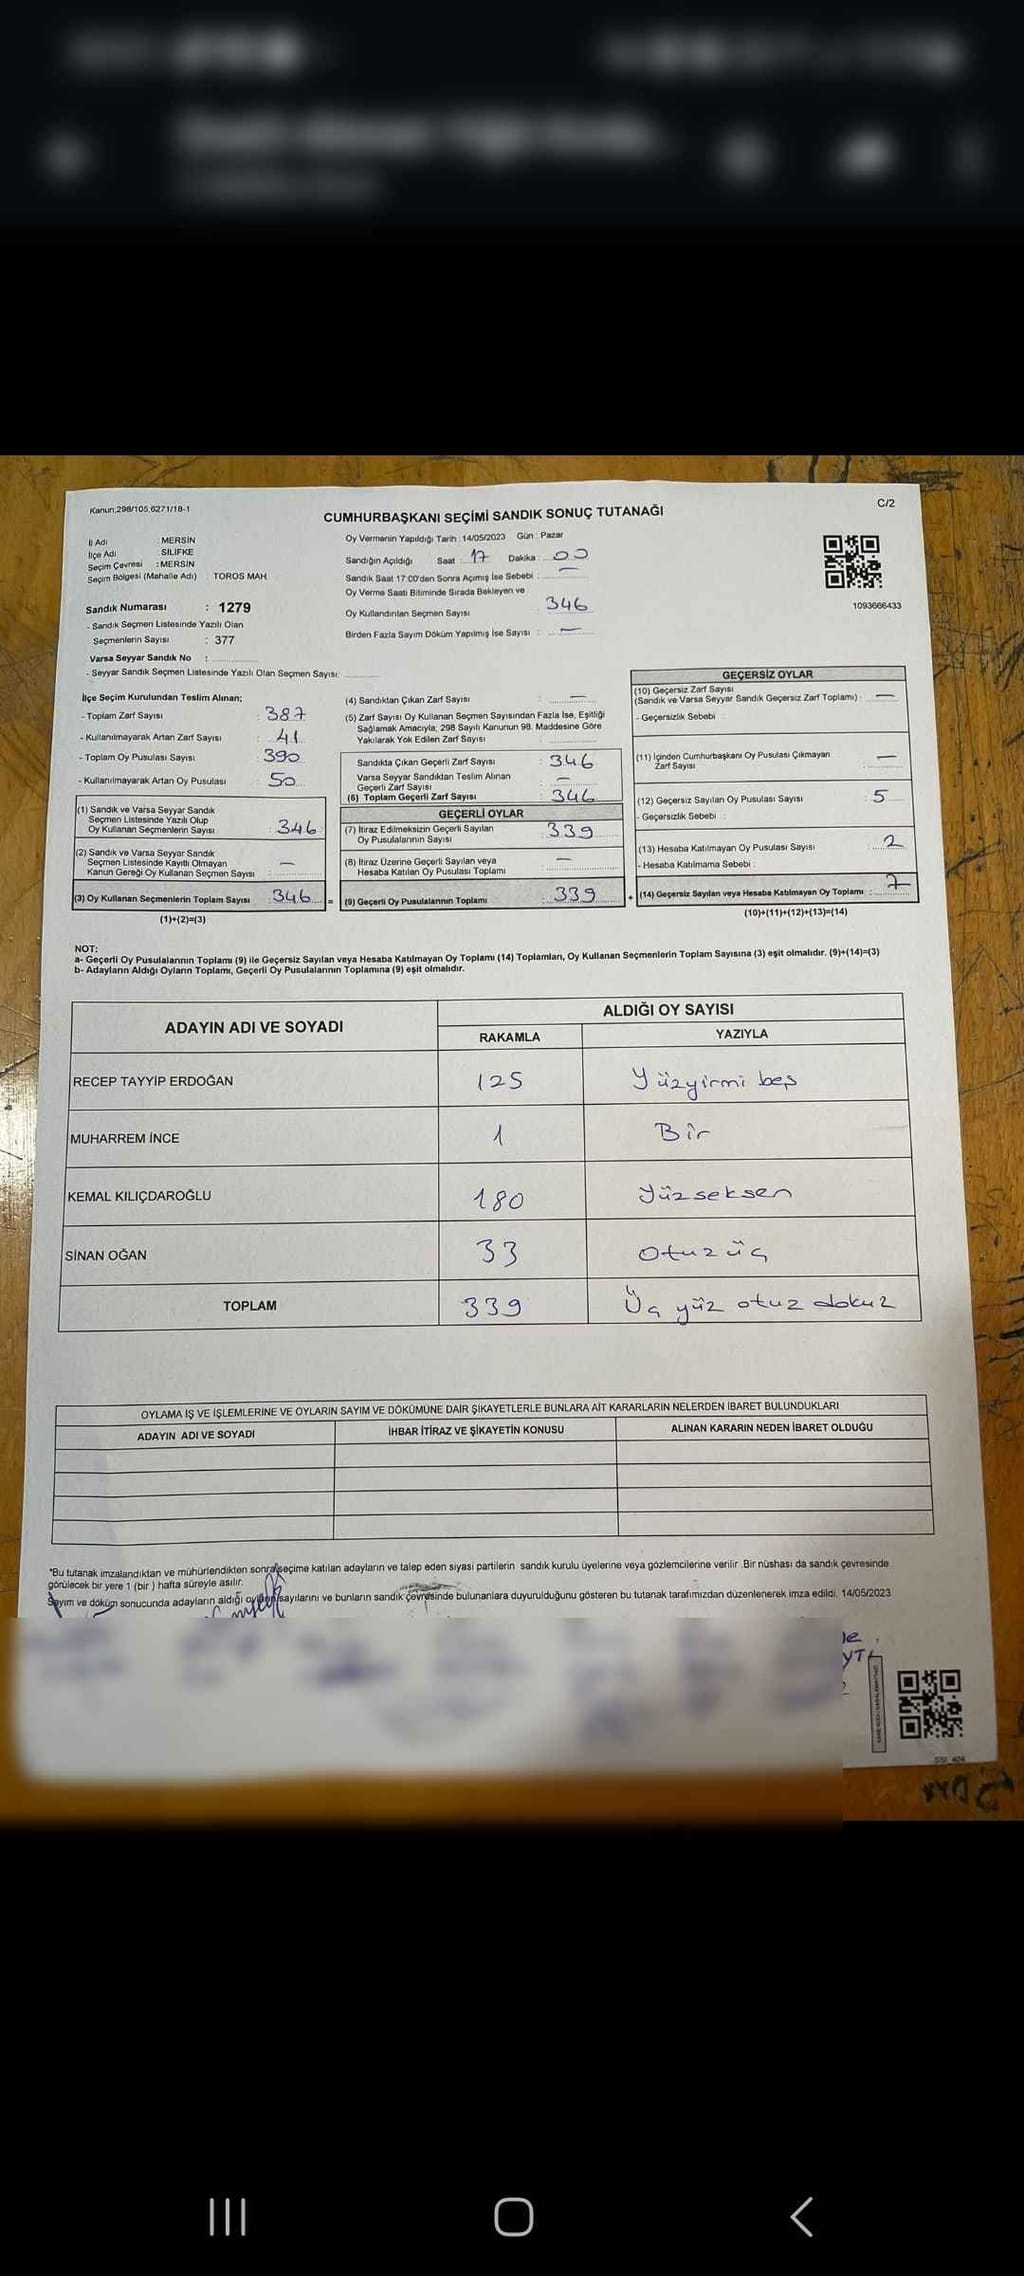 Kanun;298/105,6271/18-1
C/2
CUMHURBAŞKANI SEÇİMİ SANDIK SONUÇ TUTANAĞI
İl Adı : MERSİN
İlçe Adı : SİLİFKE
Seçim Çevresi : MERSİN
Seçim Bölgesi (Mahalle Adı) TOROS MAH
Sandık Numarası : 1279
- Sandık Seçmen Listesinde Yazılı Olan
Seçmenlerin Sayısı : 377
Varsa Seyyar Sandık No :
- Seyyar Sandık Seçmen Listesinde Yazılı Olan Seçmen Sayısı:
Oy Vermenin Yapıldığı Tarih : 14/05/2023 Gün : Pazar
Sandığın Açıldığı Saat : 17 Dakika : 00
Sandık Saat 17:00'den Sonra Açımış İse Sebebi : —
Oy Verme Saati Bitiminde Sırada Bekleyen ve
Oy Kullandırılan Seçmen Sayısı : 346
Birden Fazla Sayım Döküm Yapılmış İse Sayısı : —
1093666433
İlçe Seçim Kurulundan Teslim Alınan;
- Toplam Zarf Sayısı : 387
- Kullanılmayarak Artan Zarf Sayısı : 41
- Toplam Oy Pusulası Sayısı : 390
- Kullanılmayarak Artan Oy Pusulası : 50
(1) Sandık ve Varsa Seyyar Sandık
Seçmen Listesinde Yazılı Olup
Oy Kullanan Seçmenlerin Sayısı : 346
(2) Sandık ve Varsa Seyyar Sandık
Seçmen Listesinde Kayıtlı Olmayan
Kanun Gereği Oy Kullanan Seçmen Sayısı : —
(3) Oy Kullanan Seçmenlerin Toplam Sayısı : 346 =
(1)+(2)=(3)
(4) Sandıktan Çıkan Zarf Sayısı : —
(5) Zarf Sayısı Oy Kullanan Seçmen Sayısından Fazla İse, Eşitliği
Sağlamak Amacıyla; 298 Sayılı Kanunun 98. Maddesine Göre
Yakılarak Yok Edilen Zarf Sayısı :
Sandıkta Çıkan Geçerli Zarf Sayısı : 346
Varsa Seyyar Sandıktan Teslim Alınan
Geçerli Zarf Sayısı : —
(6) Toplam Geçerli Zarf Sayısı : 346
GEÇERLİ OYLAR
(7) İtiraz Edilmeksizin Geçerli Sayılan
Oy Pusulalarının Sayısı : 339
(8) İtiraz Üzerine Geçerli Sayılan veya
Hesaba Katılan Oy Pusulası Toplamı : —
(9) Geçerli Oy Pusulalarının Toplamı : 339 +
GEÇERSİZ OYLAR
(10) Geçersiz Zarf Sayısı
(Sandık ve Varsa Seyyar Sandık Geçersiz Zarf Toplamı) : —
- Geçersizlik Sebebi :
(11) İçinden Cumhurbaşkanı Oy Pusulası Çıkmayan
Zarf Sayısı : —
(12) Geçersiz Sayılan Oy Pusulası Sayısı : 5
- Geçersizlik Sebebi :
(13) Hesaba Katılmayan Oy Pusulası Sayısı : 2
- Hesaba Katılmama Sebebi :
(14) Geçersiz Sayılan veya Hesaba Katılmayan Oy Toplamı : 7
(10)+(11)+(12)+(13)=(14)
NOT:
a- Geçerli Oy Pusulalarının Toplamı (9) ile Geçersiz Sayılan veya Hesaba Katılmayan Oy Toplamı (14) Toplamları, Oy Kullanan Seçmenlerin Toplam Sayısına (3) eşit olmalıdır. (9)+(14)=(3)
b- Adayların Aldığı Oyların Toplamı, Geçerli Oy Pusulalarının Toplamına (9) eşit olmalıdır.
ADAYIN ADI VE SOYADI
ALDIĞI OY SAYISI
RAKAMLA YAZIYLA
RECEP TAYYİP ERDOĞAN 125 Yüzyirmi beş
MUHARREM İNCE 1 Bir
KEMAL KILIÇDAROĞLU 180 Yüzseksen
SİNAN OĞAN 33 Otuzüç
TOPLAM 339 Üç yüz otuz dokuz
OYLAMA İŞ VE İŞLEMLERİNE VE OYLARIN SAYIM VE DÖKÜMÜNE DAİR ŞİKAYETLERLE BUNLARA AİT KARARLARIN NELERDEN İBARET BULUNDUKLARI
ADAYIN ADI VE SOYADI İHBAR İTİRAZ VE ŞİKAYETİN KONUSU ALINAN KARARIN NEDEN İBARET OLDUĞU
*Bu tutanak imzalandıktan ve mühürlendikten sonra seçime katılan adayların ve talep eden siyasi partilerin sandık kurulu üyelerine veya gözlemcilerine verilir. Bir nüshası da sandık çevresinde
görülecek bir yere 1 (bir ) hafta süreyle asılır.
Sayım ve döküm sonucunda adayların aldığı oyların sayılarını ve bunların sandık çevresinde bulunanlara duyurulduğunu gösteren bu tutanak tarafımızdan düzenlenerek imza edildi. 14/05/2023